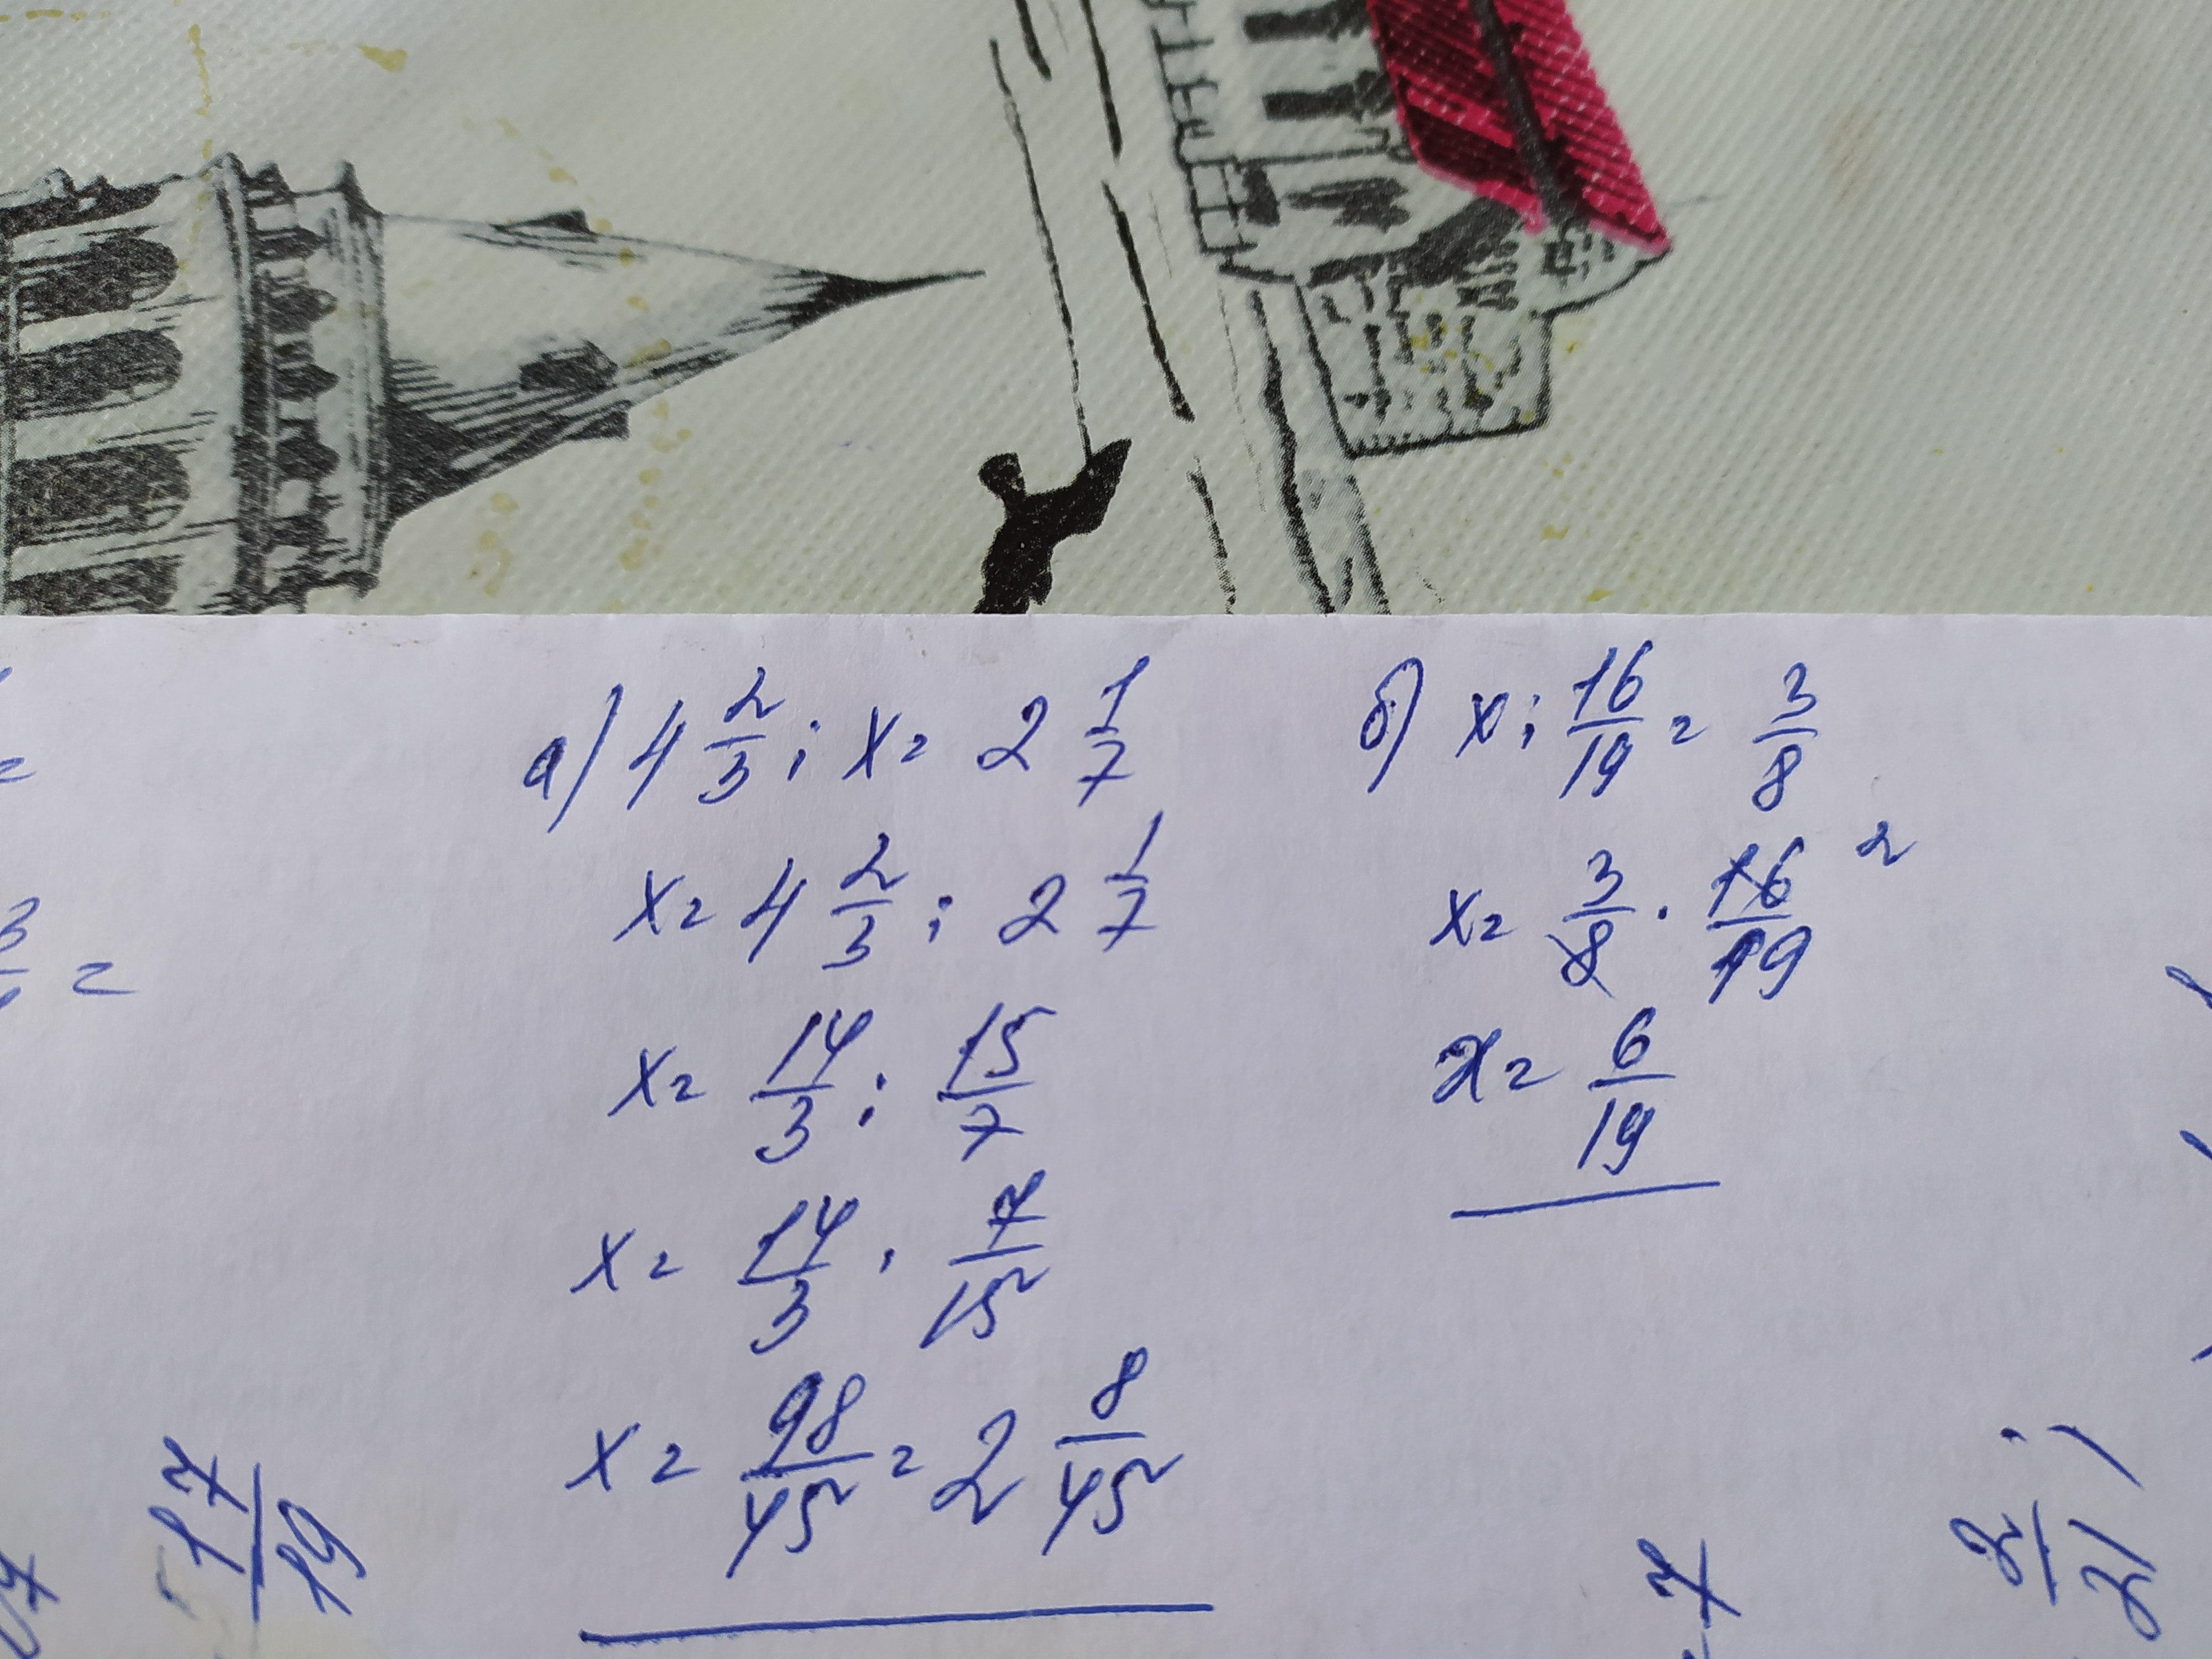 а) 4 2/3 : x = 2 1/7
x = 4 2/3 : 2 1/7
x = 14/3 : 15/7
x = 14/3 · 7/15
x = 98/45 = 2 8/45
б) x : 16/19 = 3/8
x = 3/8 · 16/19 2
x = 6/19
3
=
1 7/19
7